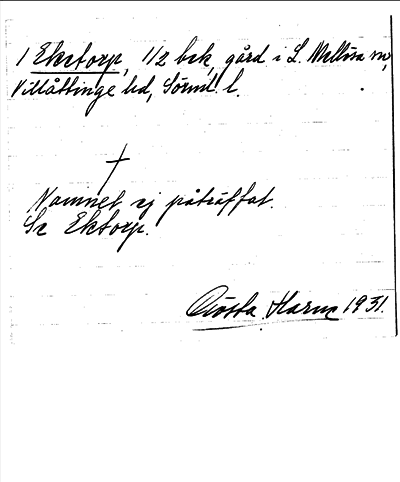 1 Ekstorp, 1/2 bsk, gård i L. Mellösa sn,
Villåttinge hd, Sörml. l.
Namnet ej påträffat.
Se Ektorp.
Gösta Harun 1931.